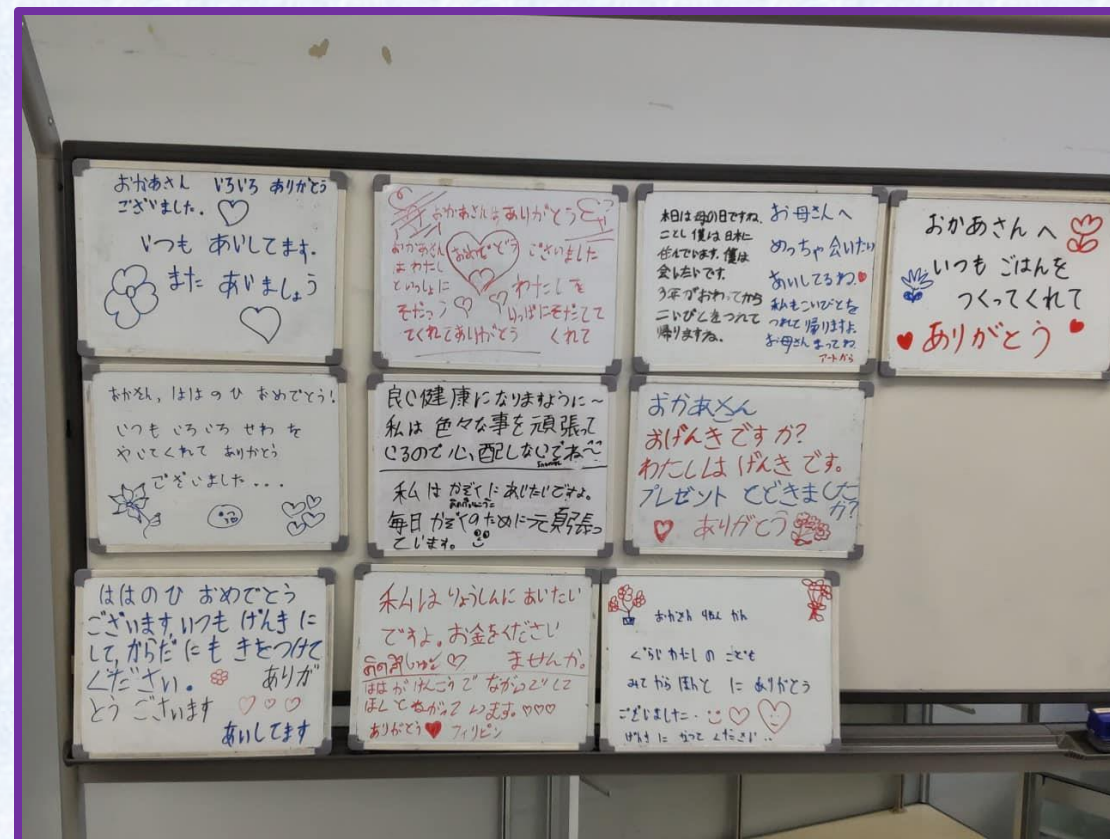 おかあさん いろいろ ありがとう
ございました。
いつも あいしてます。
また あいましょう
おかあさんは ありがとう
おかあさん
はわたし
といっしょに
そだっ
てくれてありがとう
おめでとう
ございました
わたしを
りっぱにそだてて
くれて
本日は母の日ですね。
ことし僕は日本に
住んでいます。僕は
会いたいです。
3年がおわってから
こいびとをつれて
帰りますね。
お母さんへ
めっちゃ会いたい
あいしてるね。
私もこいびとを
つれて帰りますよ
お母さんまってね
アートから
おかあさんへ
いつも ごはんを
つくってくれて
ありがとう
おかさん、ははのひ おめでとう!
いつも いろいろ せわ を
やいてくれて ありがとう
ございました...
良い健康になりますように〜
私は 色々な事を頑張って
いるので心配しないでね〜
私は かぞくに あいたいですよ。
毎日かぞくのために元頑張っ
ています。
おかあさん
おげんきですか?
わたしは げんき です。
プレゼント とどきました
か?
ありがとう
ははのひ おめでとう
ございます、いつも げんき に
して、からだ にも きをつけて
ください。
ありが
とう ございます
あいしてます
私は りょうしんに あいたい
ですよ。お金をください
ませんか。
ははが けんこうで ながいきして
ほしと ねがって います。
ありがとう フィリピン
わたし の こども
みて から ほんと に ありがとう
ございました.
げんき に なって ください..